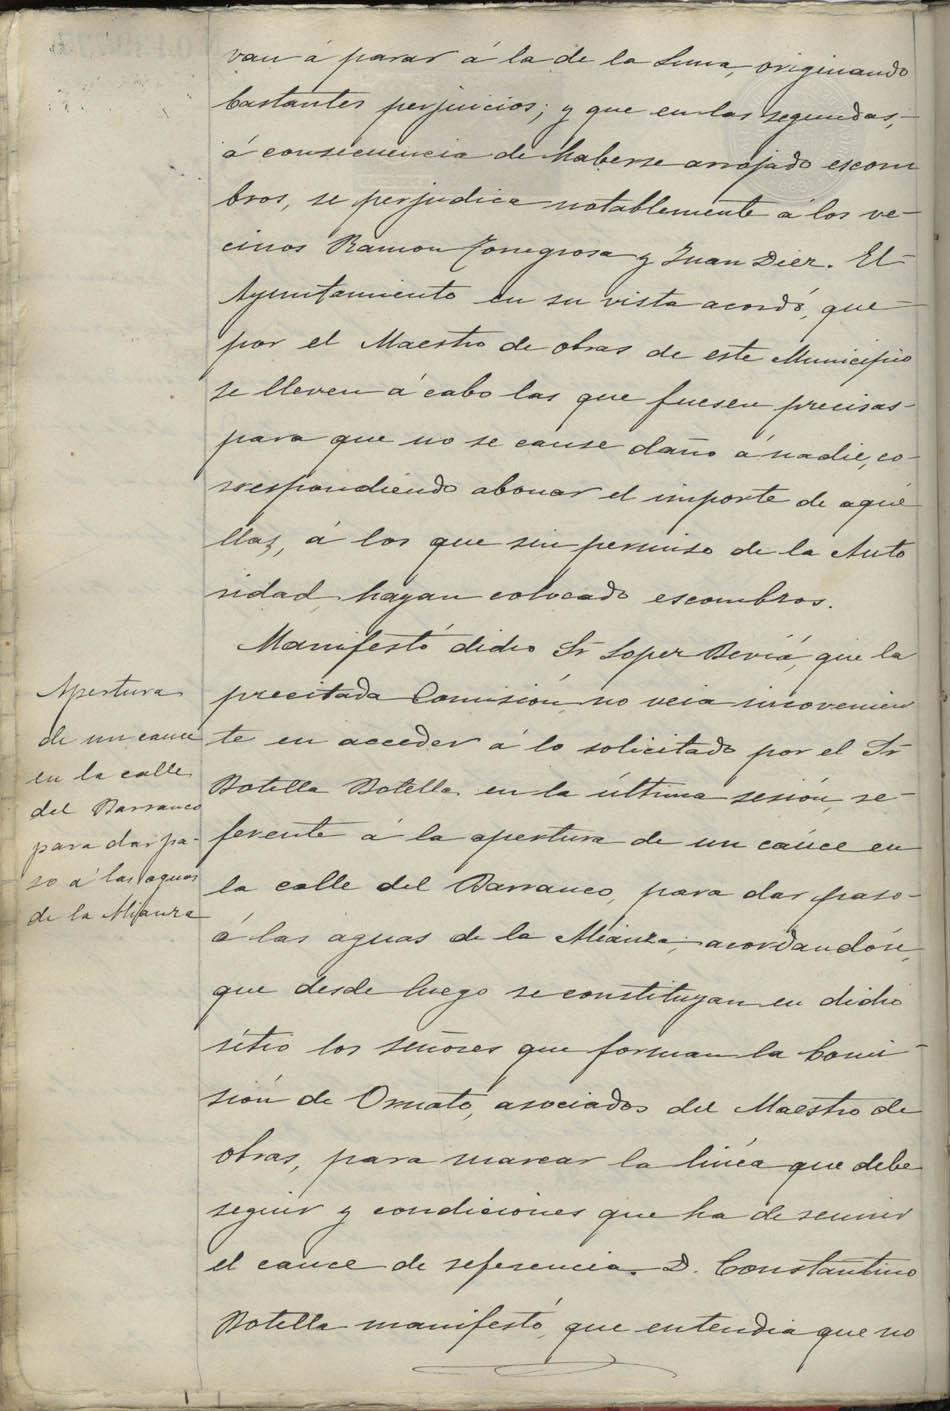 van á parar á la de la Luna, originando
bastantes perjuicios; y que en las segundas,
á consecuencia de haberse arrojado escom
bros, se perjudica notablemente á los ve-
cinos Ramon Torregrosa y Juan Diez. El
Ayuntamiento en su vista acordó, que
por el Maestro de obras de este Municipio
se lleven á cabo las que fuesen precisas
para que no se cause daño á nadie, co-
rrespondiendo abonar el importe de aque
llas, á los que sin permiso de la Auto
ridad hayan colocado escombros.
Manifestó dicho Sr Lopez Beviá, que la
precitada Comisión, no veia inconvenien
te en acceder á lo solicitado por el Sr
Botella Botella en la última sesión, re-
ferente á la apertura de un caúce en
la calle del Barranco, para dar paso
á las aguas de la Mianza, acordandóse,
que desde luego se constituyan en dicho
sítio los señores que forman la Comi-
sión de Ornato, asociados del Maestro de
obras, para marcar la linéa que debe
seguir y condiciones que ha de reunir
el cauce de referencia. D. Constantino
Botella manifestó, que entendia que no
Apertura
de un cauce
en la calle
del Barranco
para dar pa-
so á las aguas
de la Mianza